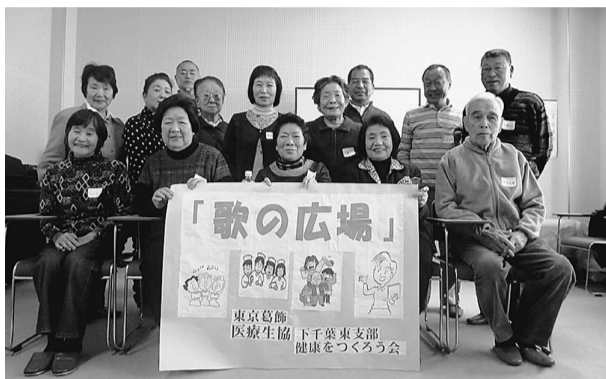 「歌の広場」
東京葛飾
医療生協
下千葉東支部
健康をつくろう会